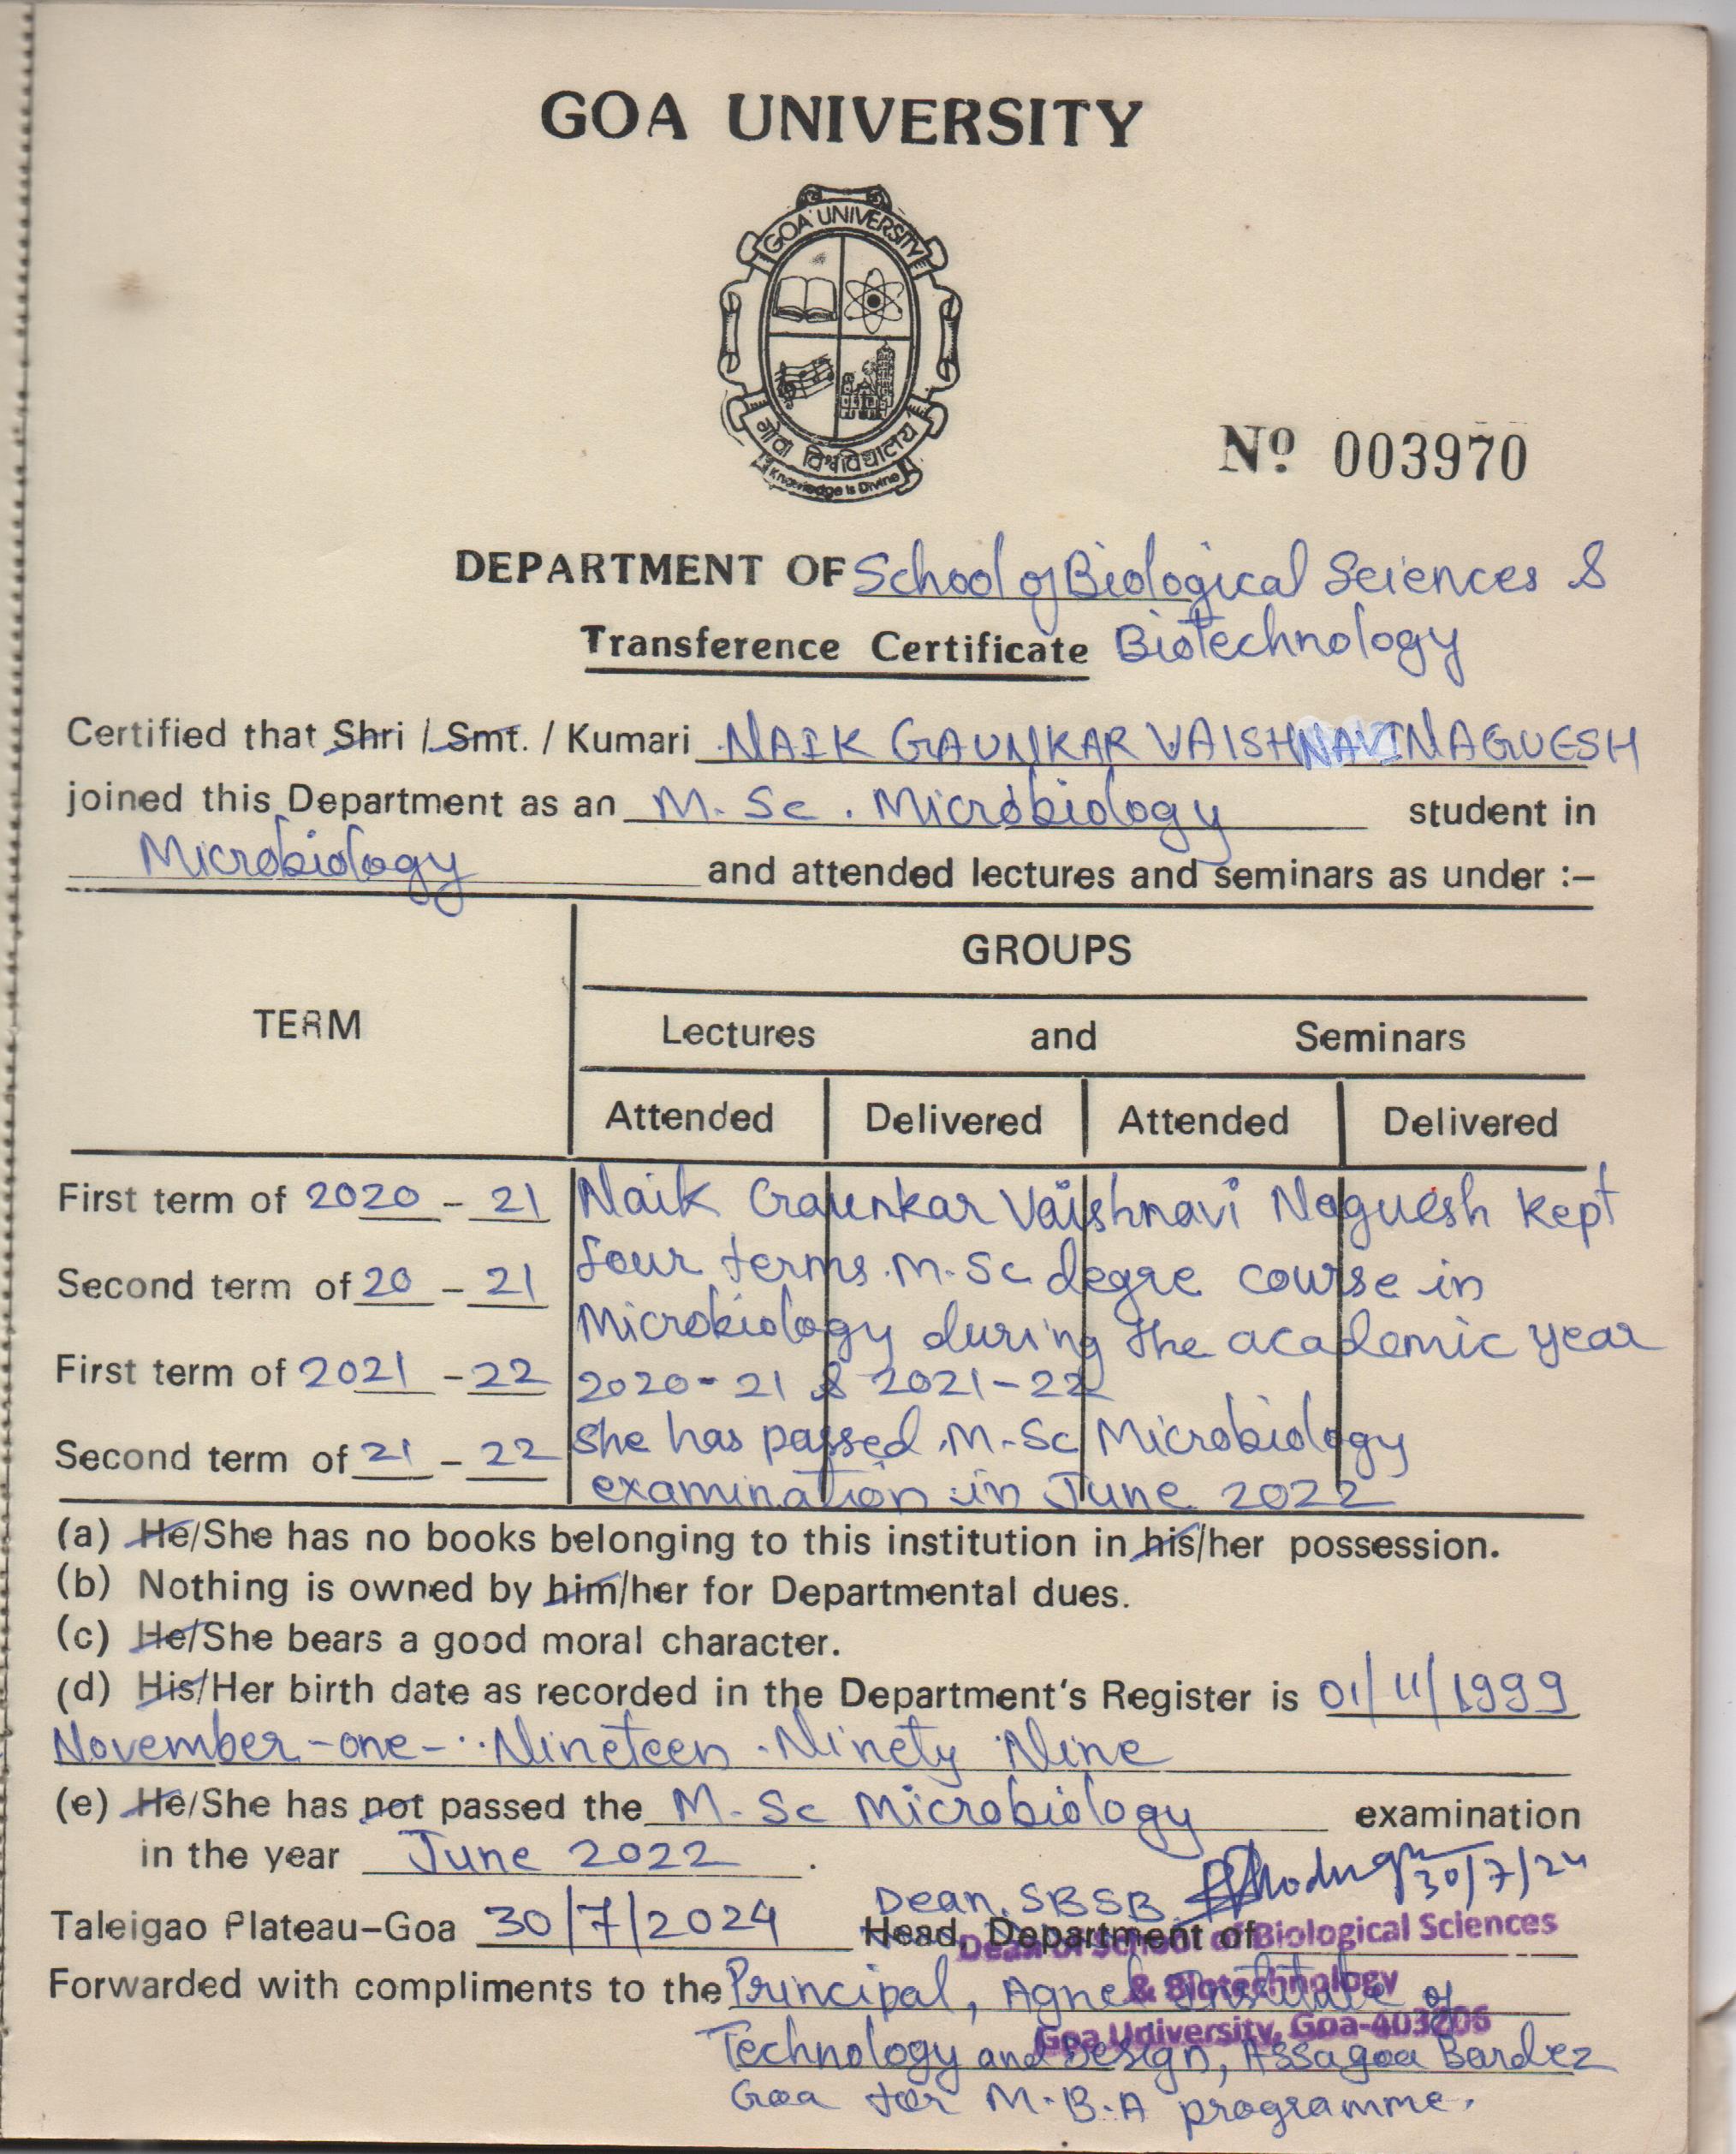 GOA UNIVERSITY
GOA UNIVERSITY
गोंय विश्वविद्यालय
Knowledge is Divine
Nº 003970
DEPARTMENT OF School of Biological Sciences &
Transference Certificate Biotechnology
Certified that Shri / Smt. / Kumari NAIK GAUNKAR VAISHNAVI NAGUESH
joined this Department as an M. Sc. Microbiology student in
Microbiology and attended lectures and seminars as under :–
GROUPS
TERM
Lectures and Seminars
Attended Delivered Attended Delivered
First term of 2020 - 21 Naik Gaunkar Vaishnavi Naguesh kept
four terms M.Sc degre course in
Second term of 20 - 21
Microbiology during the academic year
First term of 2021 - 22 2020-21 & 2021-22
She has passed M.Sc Microbiology
Second term of 21 - 22
examination in June 2022
(a) He/She has no books belonging to this institution in his/her possession.
(b) Nothing is owned by him/her for Departmental dues.
(c) He/She bears a good moral character.
(d) His/Her birth date as recorded in the Department's Register is 01/11/1999
November - one - Nineteen Ninety Nine
(e) He/She has not passed the M.Sc Microbiology examination
in the year June 2022.
30/7/24
Dean, SBSB
Taleigao Plateau–Goa 30/7/2024 Head, Department of
Dean of School of Biological Sciences
& Biotechnology
Goa University, Goa-403206
Forwarded with compliments to the Principal, Agnel Institute of
Technology and Design, Assagoa Bardez
Goa for M.B.A programme.